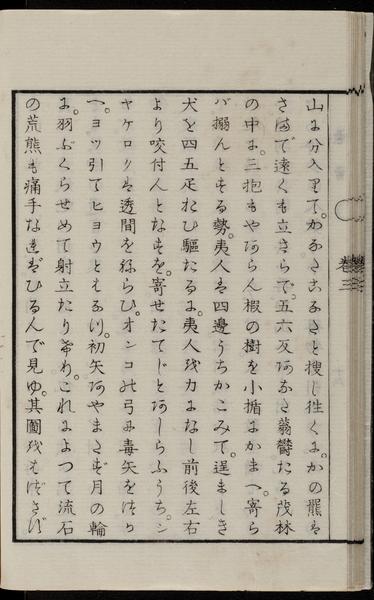 山に分入りて。かなたこなたと捜し徃くに。かの熊は
さまで遠くも立さらで。五六反あなた蓊欝たる茂林
の中に。三抱もやあらん椴の樹を小楯にかまへ。寄ら
バ搦んとする勢。夷人は四邊うちかこみて。逞ましき
犬を四五疋おひ駆たるに。夷人を力になし前後左右
より咬付んとなすを。寄せたてじとあしらふうち。シ
ヤケロクは透間を祢らひ。オンコの弓に毒矢をつが
へ。ヨツ引てヒヨウとはなつ。初矢あやまたず月の輪
に。羽ぶくらせめて射立たりけれ。これによつて流石
の荒熊も痛手なればひるんで見ゆ。其圖をはづさず
巻三